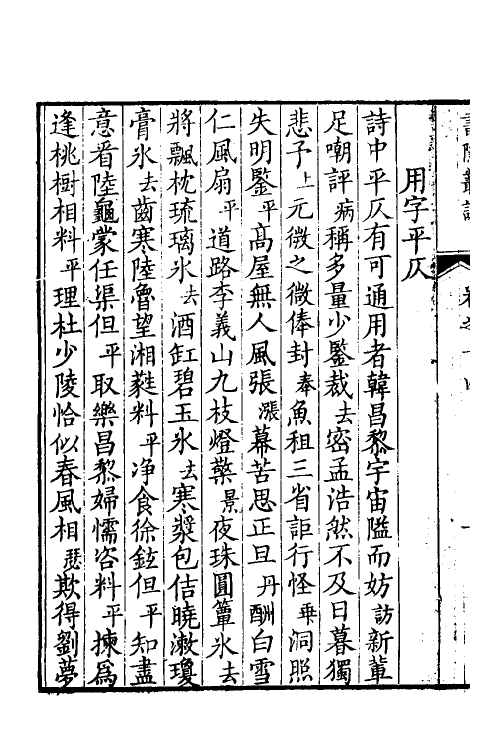 用字平仄
詩中平仄有可通用者韓昌黎宇宙隘而妨訪新輩
足嘲評病稱多量少鑒裁去密孟浩然不及日暮獨
悲予上元微之微俸封奉魚租三省詎行怪乖洞照
失明鑒平高屋無人風張漲幕苦思正旦丹酬白雪
仁風扇平道路李義山九枝燈檠景夜珠圓簟氷去
將飄枕琉璃氷去酒缸碧玉氷去寒漿包佶曉漱瓊
膏氷去齒寒陸魯望湘蕤料平净食徐鉉但平知盡
意看陸龜蒙任渠但平取樂昌黎婦懦咨料平揀爲
逢桃樹相料平理杜少陵恰似春風相瑟欺得劉夢